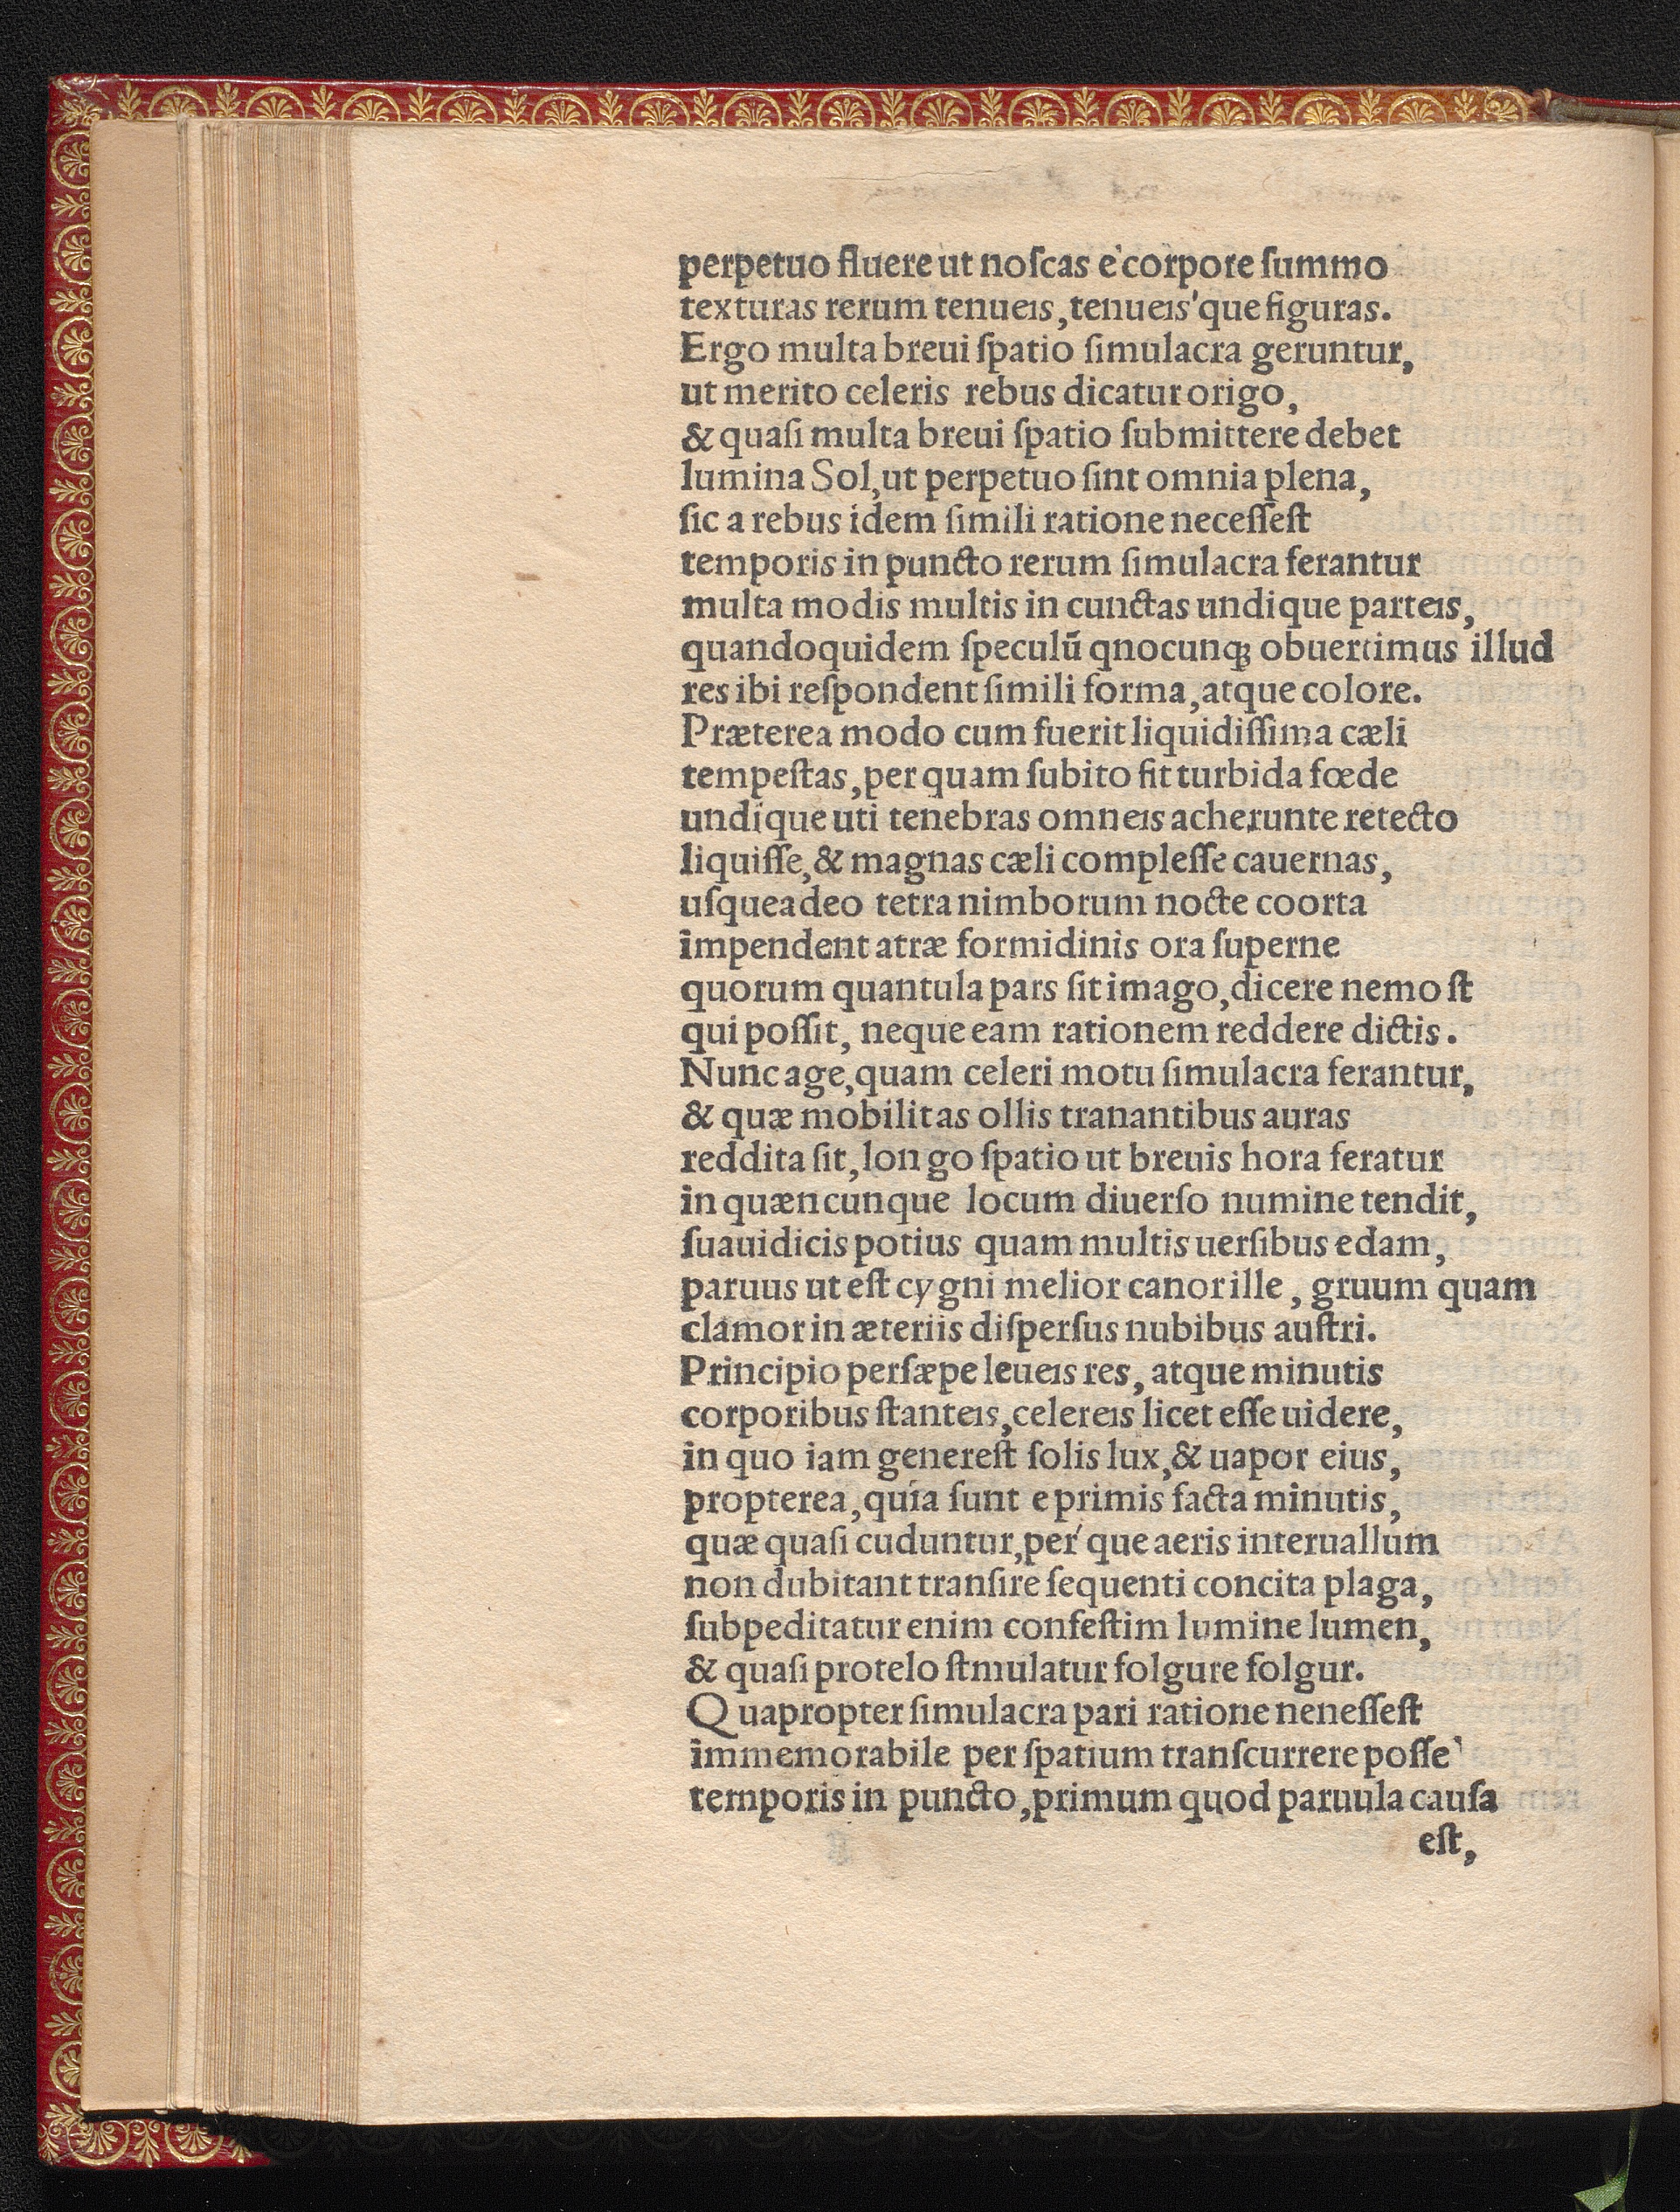 perpetuo fluere ut noſcas è corpore ſummo
texturas rerum tenueis, tenueis'que figuras.
Ergo multa breui ſpatio ſimulacra geruntur,
ut merito celeris rebus dicatur origo,
& quaſi multa breui ſpatio ſubmittere debet
lumina Sol, ut perpetuo ſint omnia plena,
ſic a rebus idem ſimili ratione neceſſeſt
temporis in puncto rerum ſimulacra ferantur
multa modis multis in cunctas undique parteis,
quandoquidem ſpeculū qnocunqꝫ obuertimus illud
res ibi reſpondent ſimili forma, atque colore.
Præterea modo cum fuerit liquidiſſima cæli
tempeſtas, per quam ſubito fit turbida fœde
undique uti tenebras omneis acherunte retecto
liquiſſe, & magnas cæli compleſſe cauernas,
uſqueadeo tetra nimborum nocte coorta
impendent atræ formidinis ora ſuperne
quorum quantula pars ſit imago, dicere nemo ſt
qui poſſit, neque eam rationem reddere dictis.
Nunc age, quam celeri motu ſimulacra ferantur,
& quæ mobilitas ollis tranantibus auras
reddita ſit, longo ſpatio ut breuis hora feratur
in quæncunque locum diuerſo numine tendit,
ſuauidicis potius quam multis uerſibus edam,
paruus ut eſt cygni melior canor ille, gruum quam
clamor in æteriis diſperſus nubibus auſtri.
Principio perſæpe leueis res, atque minutis
corporibus ſtanteis, celereis licet eſſe uidere,
in quo iam genereſt ſolis lux, & uapor eius,
propterea, quia ſunt e primis facta minutis,
quæ quaſi cuduntur, per'que aeris interuallum
non dubitant tranſire ſequenti concita plaga,
ſubpeditatur enim confeſtim lumine lumen,
& quaſi protelo ſtmulatur folgure folgur.
Quapropter ſimulacra pari ratione neneſſeſt
immemorabile per ſpatium tranſcurrere poſſe
temporis in puncto, primum quod paruula cauſa
eſt,